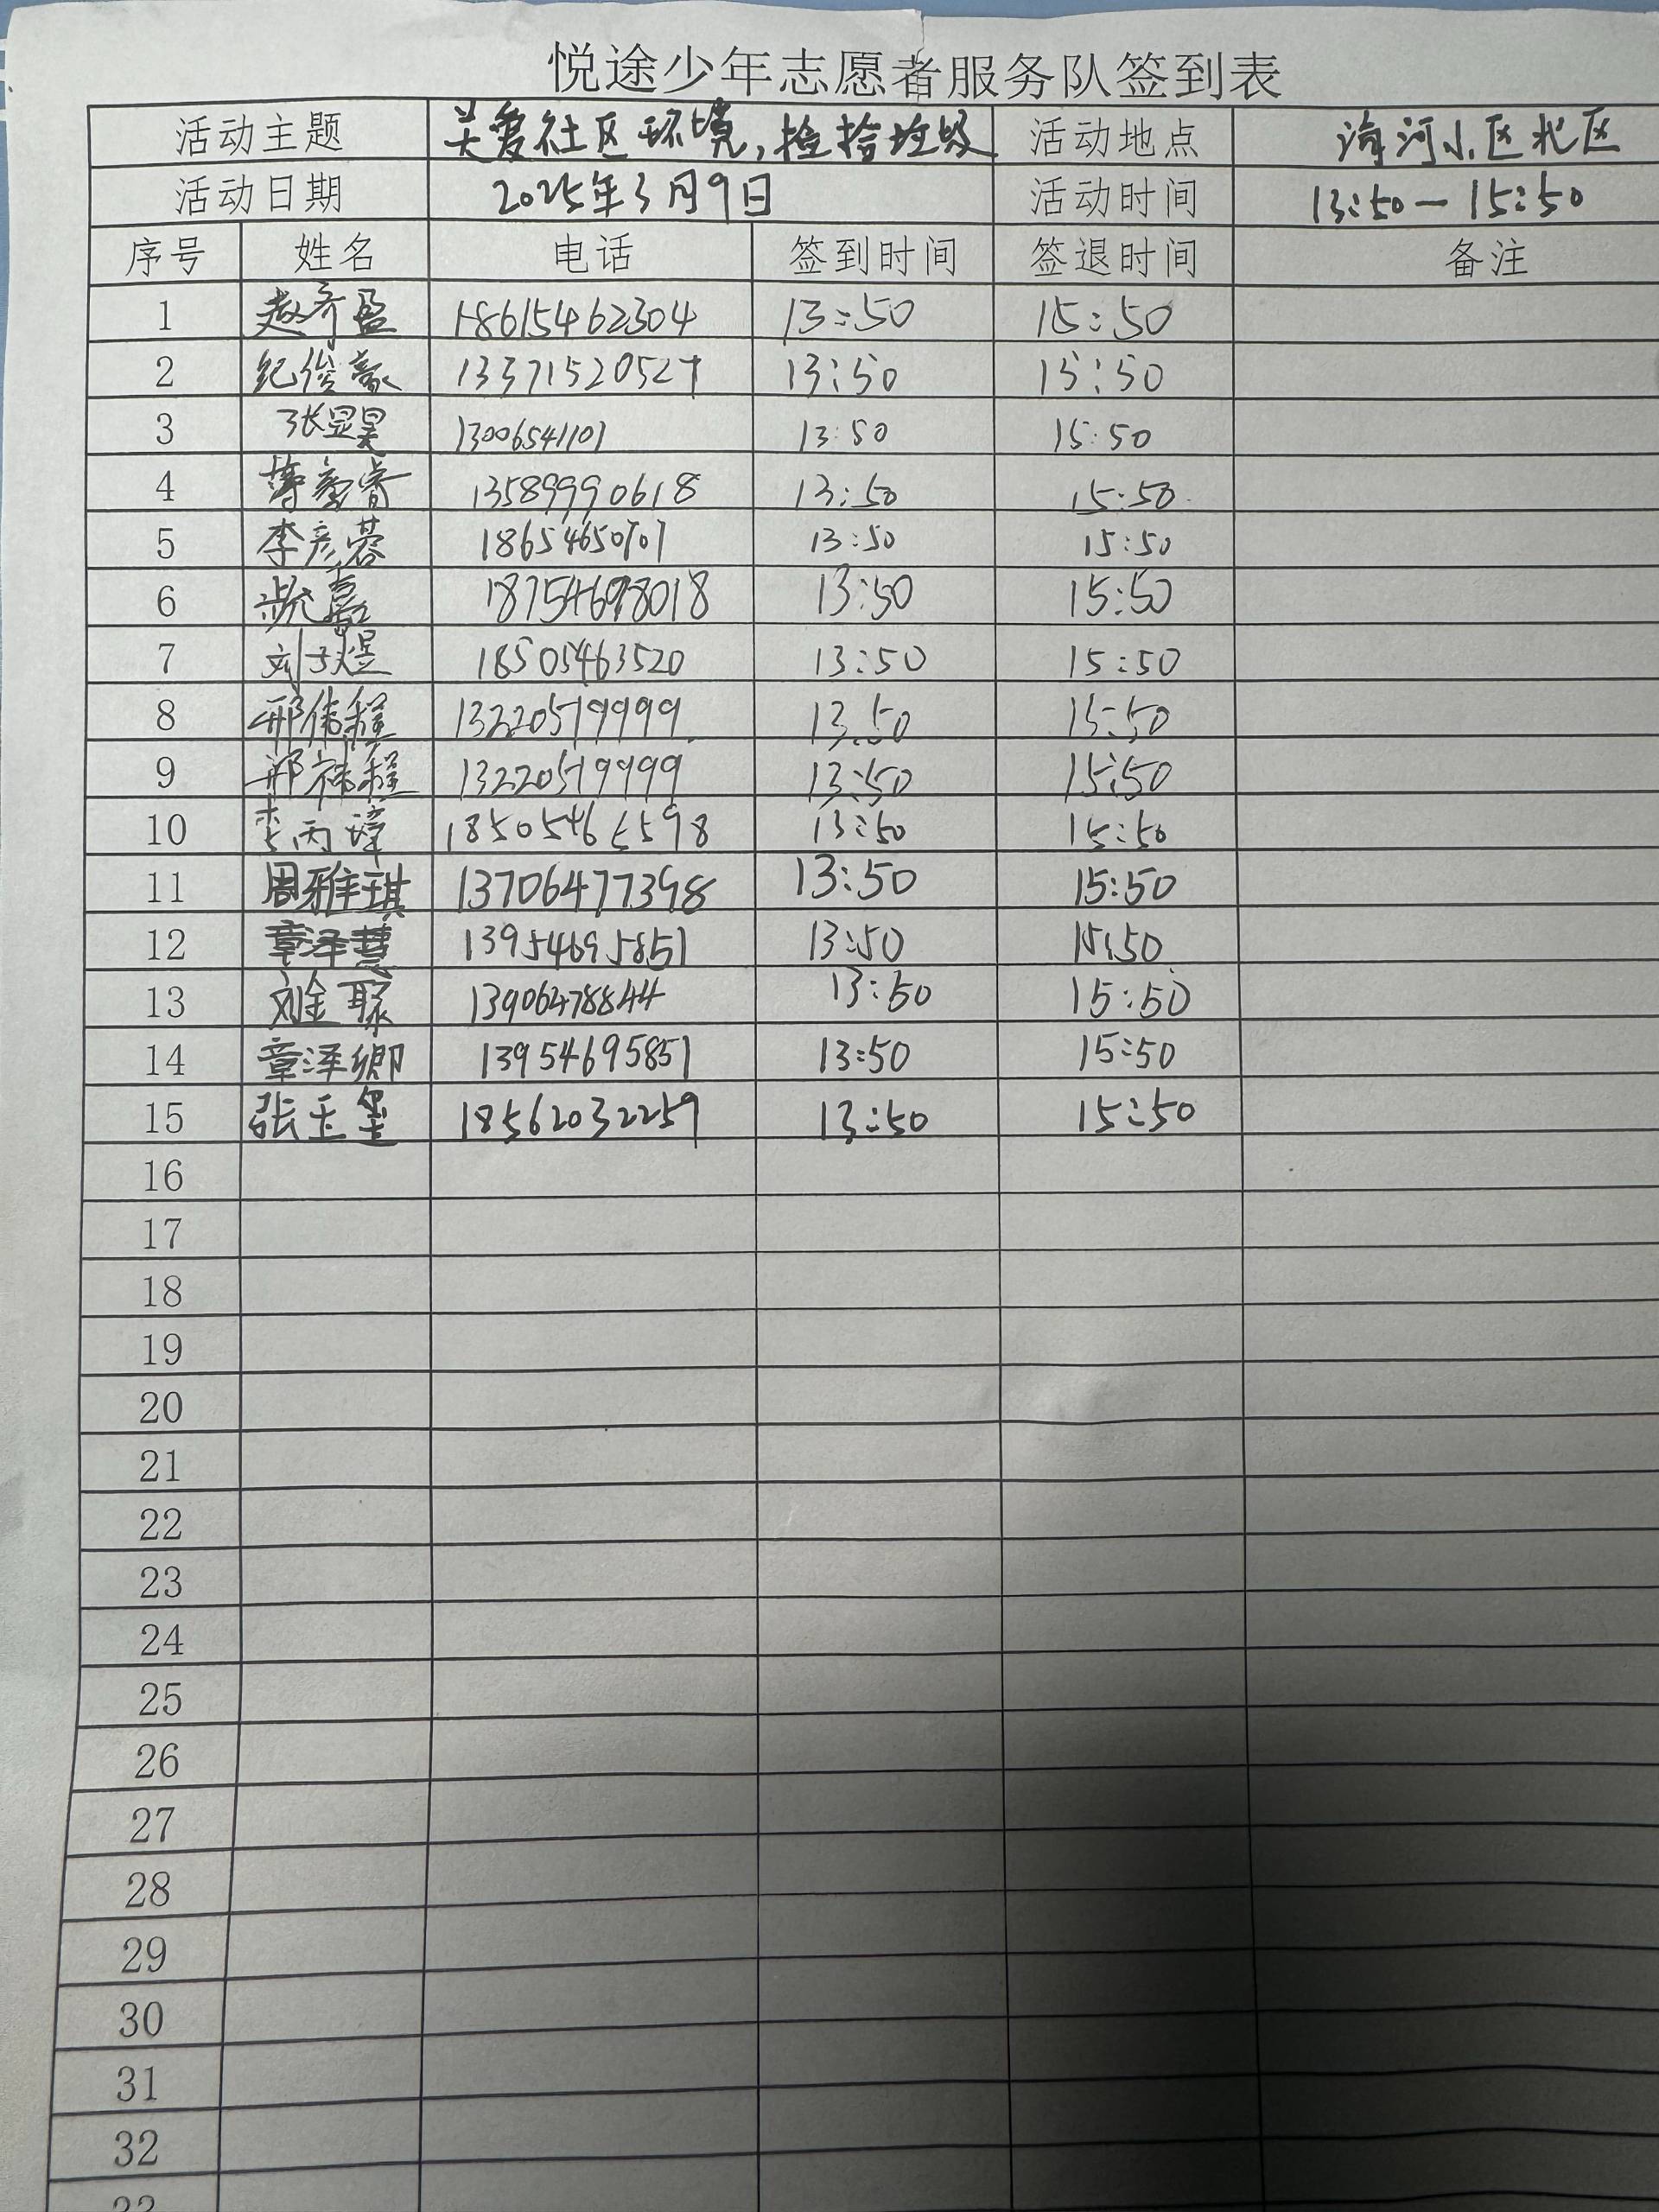 悦途少年志愿者服务队签到表
活动主题 关爱社区环境,捡拾垃圾 活动地点 海河小区北区
活动日期 2025年3月9日 活动时间 13:50—15:50
序号 姓名 电话 签到时间 签退时间 备注
1 赵齐盈 18615462304 13:50 15:50
2 纪俊豪 13:50 15:50
3 张显昊 13006541101 13:50 15:50
4 13589990618 13:50 15:50
5 李彦蓉 13:50 15:50
6 13:50 15:50
7 刘子煜 18505463520 13:50 15:50
8 邢伟程 13220519999 13:50 15:50
9 邢祎程 13220519999 13:50 15:50
10 李丙璋 13:50 15:50
11 周雅琪 13706477398 13:50 15:50
12 章泽慧 13954695851 13:50 15:50
13 刘金聚 13906478844 13:50 15:50
14 章泽卿 13954695851 13:50 15:50
15 张玉墨 18562032259 13:50 15:50
16
17
18
19
20
21
22
23
24
25
26
27
28
29
30
31
32
33